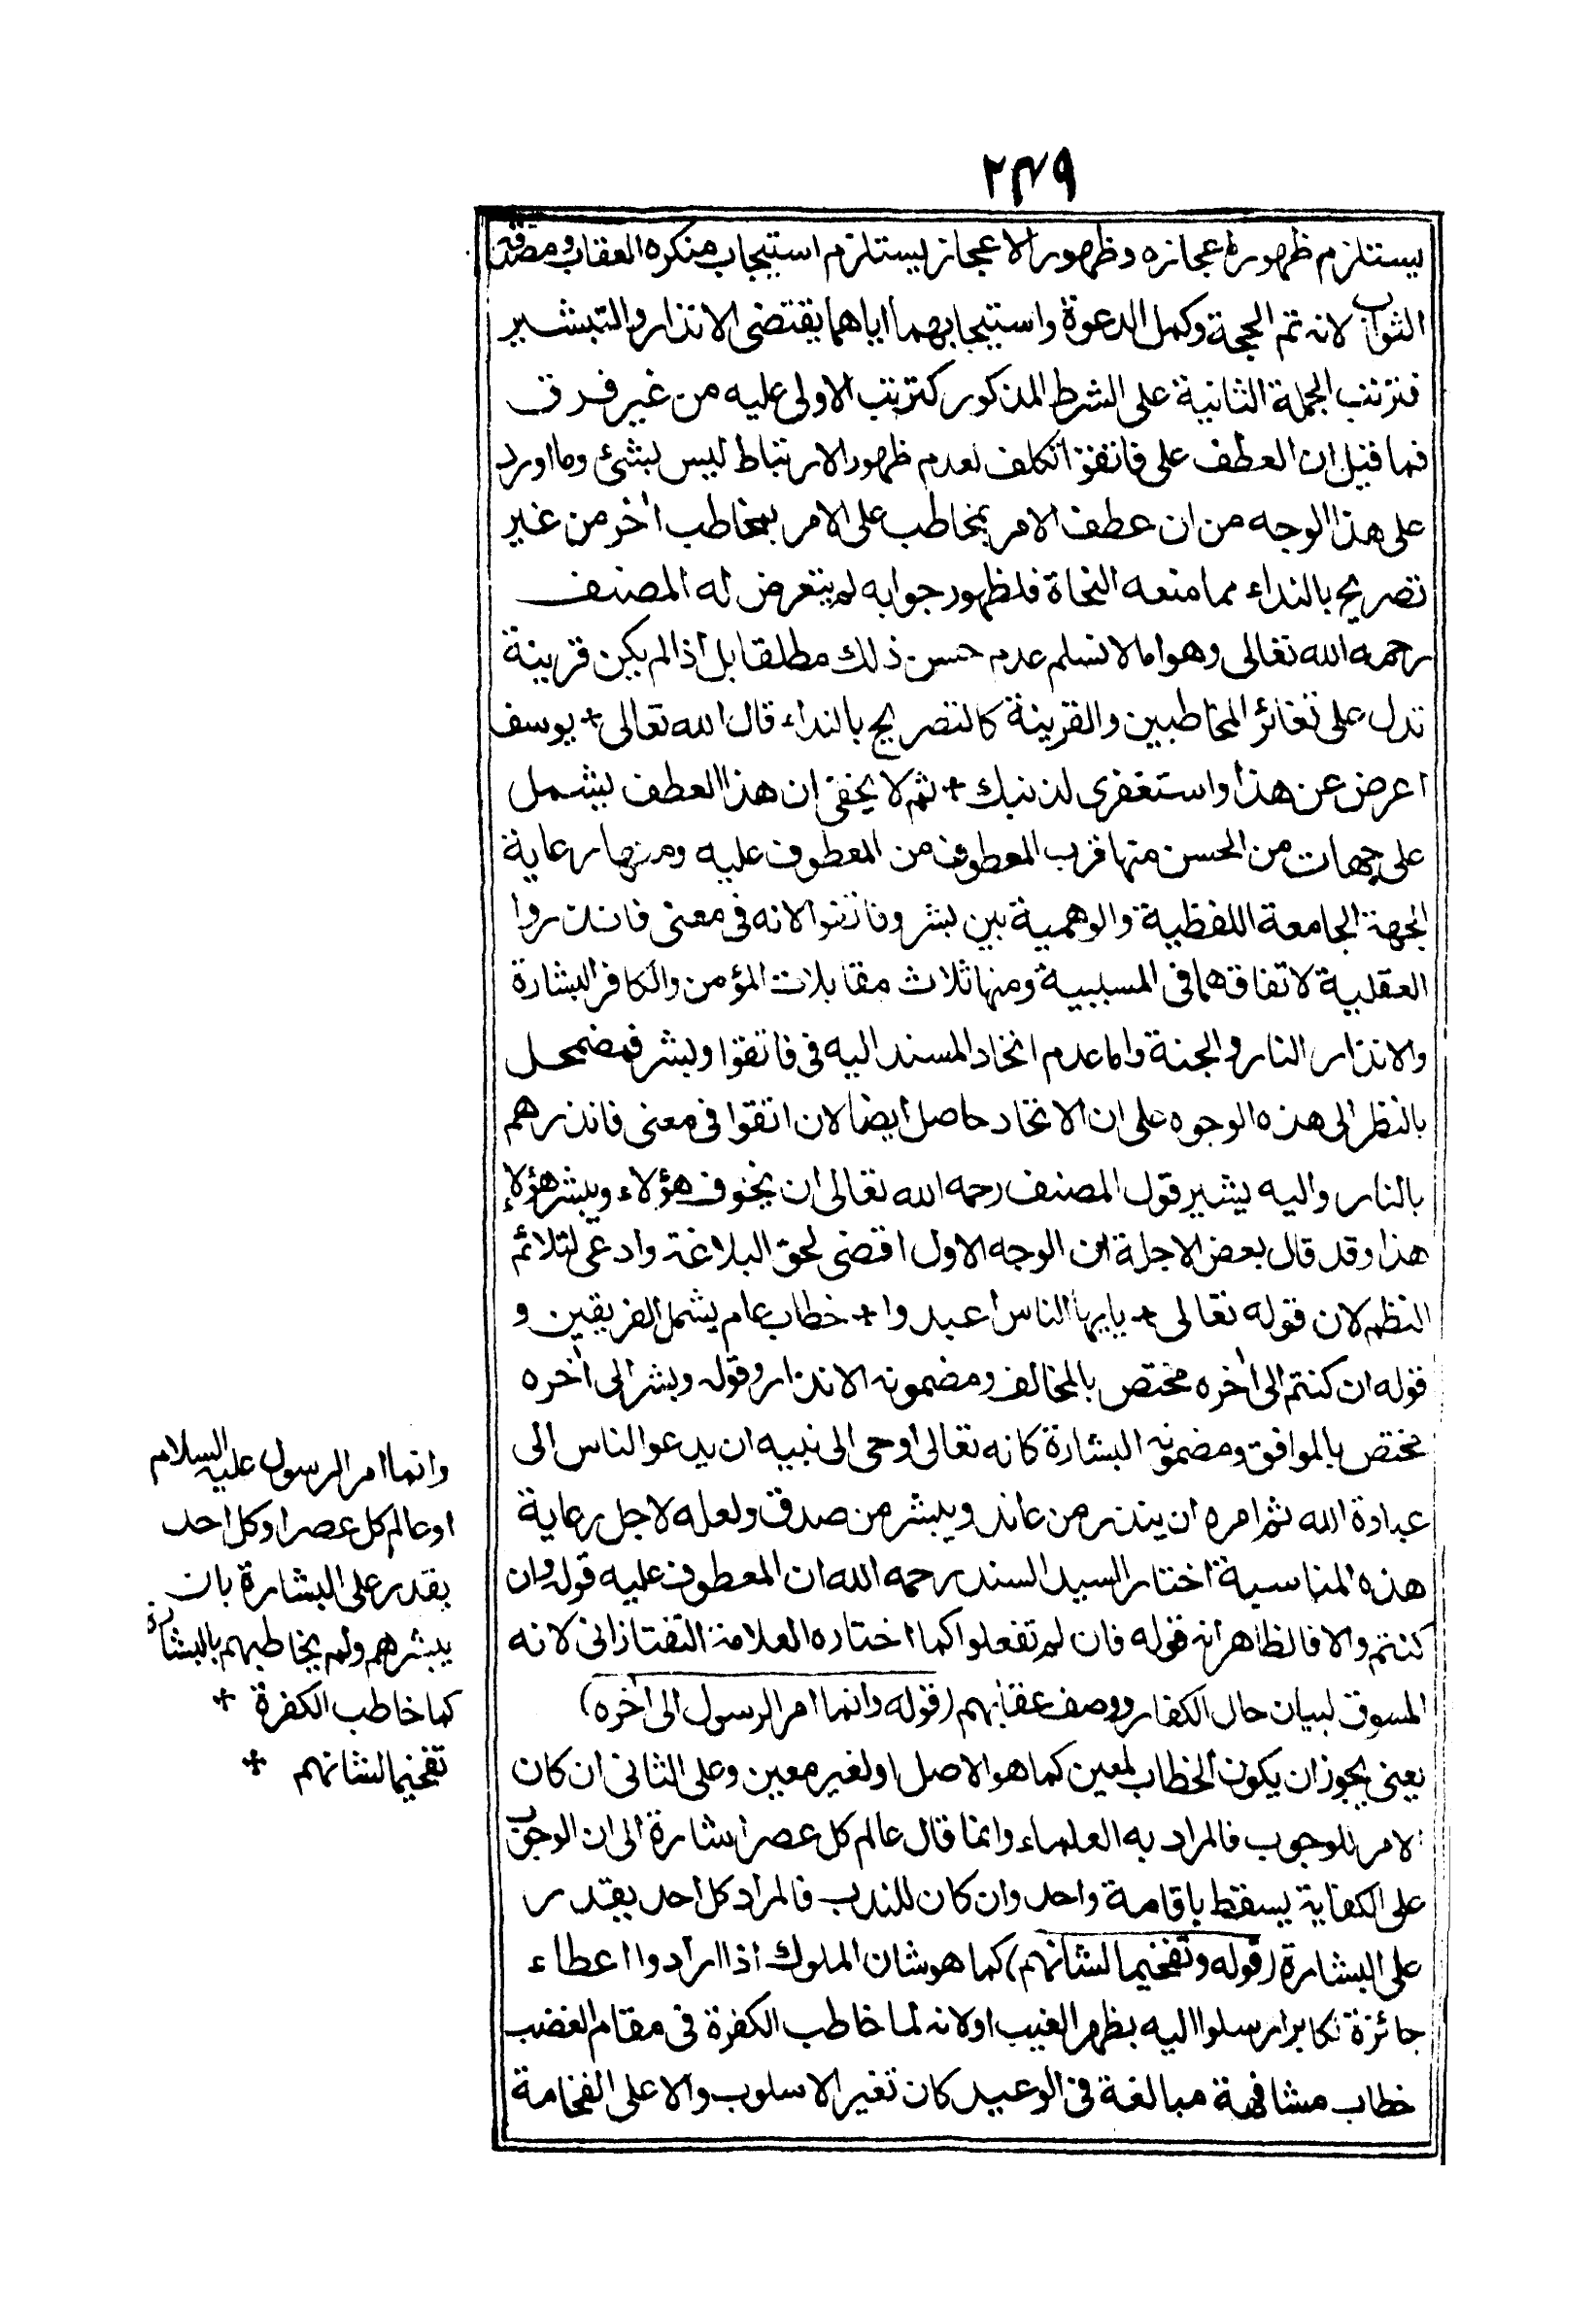 ٢٤٩
يستلزم ظهور اعجازه وظهور الاعجاز يستلزم استيجاب منكره العقاب ومصدقه
الثواب لانه تم الحجة وكمل الدعوة واستيجابهما اياهما يقتضى الانذار والتبشير
فترتب الجملة الثانية على الشرط المذكور كترتب الاولى عليه من غير فرق
فما قيل ان العطف على فاتقوا تكلف لعدم ظهور الارتباط ليس بشئ وما اورد
على هذا الوجه من ان عطف الامر بمخاطب على الامر بمخاطب اخر من غير
تصريح بالنداء مما منعه النحاة فلظهور جوابه لم يتعرض له المصنف
رحمه الله تعالى وهو اما لا نسلم عدم حسن ذلك مطلقا بل اذا لم يكن قرينة
تدل على تغائر المخاطبين والقرينة كالتصريح بالنداء قال الله تعالى + يوسف
اعرض عن هذا واستغفرى لذنبك + ثم لا يخفى ان هذا العطف يشمل
على جهات من الحسن منها قرب المعطوف من المعطوف عليه ومنها رعاية
الجهة الجامعة اللفظية والوهمية بين بشر وفاتقوا لانه فى معنى فانذروا
العقلية لاتفاقهما فى المسببية ومنها ثلاث مقابلات المؤمن والكافر البشارة
والانذار النار والجنة واما عدم اتحاد المسند اليه فى فاتقوا وبشر فمضمحل
بالنظر الى هذه الوجوه على ان الاتحاد حاصل ايضا لان اتقوا فى معنى فانذرهم
بالنار واليه يشير قول المصنف رحمه الله تعالى ان يخوف هؤلاء ويبشر هؤلاء
هذا وقد قال بعض الاجلة ان الوجه الاول اقضى لحق البلاغة وادعى لتلائم
النظم لان قوله تعالى + يايها الناس اعبدوا + خطاب عام يشمل الفريقين و
قوله ان كنتم الى اخره مختص بالمخالف ومضمونه الانذار وقوله وبشر الى اخره
مختص بالموافق ومضمونه البشارة كانه تعالى اوحى الى نبيه ان يدعو الناس الى
عبادة الله ثم امره ان ينذر من عاند ويبشر من صدق ولعله لاجل رعاية
هذه المناسبة اختار السيد السند رحمه الله ان المعطوف عليه قوله وان
كنتم والا فالظاهر انه قوله فان لم تفعلوا كما اختاره العلامة التفتازانى لانه
المسوق لبيان حال الكفار ووصف عقابهم (قوله وانما امر الرسول الى اخره)
يعنى يجوز ان يكون الخطاب لمعين كما هو الاصل او لغير معين وعلى الثانى ان كان
الامر للوجوب فالمراد به العلماء وانما قال عالم كل عصر اشارة الى ان الوجوب
على الكفاية يسقط باقامة واحد وان كان للندب فالمراد كل احد يقدر
على البشارة (قوله وتفخيما لشانهم) كما هو شان الملوك اذا ارادوا اعطاء
جائزة لكابر ارسلوا اليه بظهر الغيب او لانه لما خاطب الكفرة فى مقام الغضب
خطاب مشافهة مبالغة فى الوعيد كان تغير الاسلوب والا على الفخامة
وانما امر الرسول عليه السلام
او عالم كل عصر او كل احد
يقدر على البشارة بان
يبشرهم ولم يخاطبهم بالبشارة
كما خاطب الكفرة +
تفخيما لشانهم +